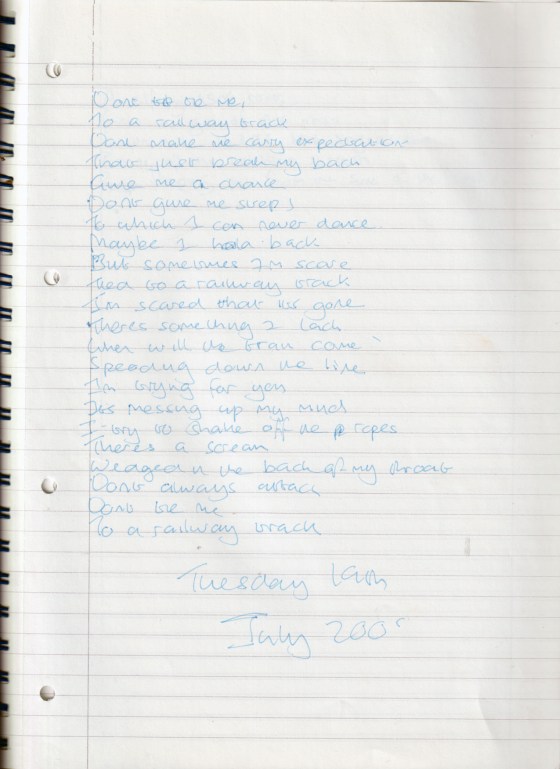 Dont tie me,
To a railway track
Dont make me carry expectation
That just break my back
Give me a chance
Dont give me steps
To which I can never dance.
Maybe I hold back
But sometimes Im scare
Tied to a railway track
I'm scared that its gone
Theres something I lack
When will the train come
Speeding down the line
Im trying for you
Its messing up my mind
I try to shake off the ropes
Theres a scream
Wedged in the back of my throat
Dont always attack
Dont tie me.
To a railway track
Tuesday
July 200